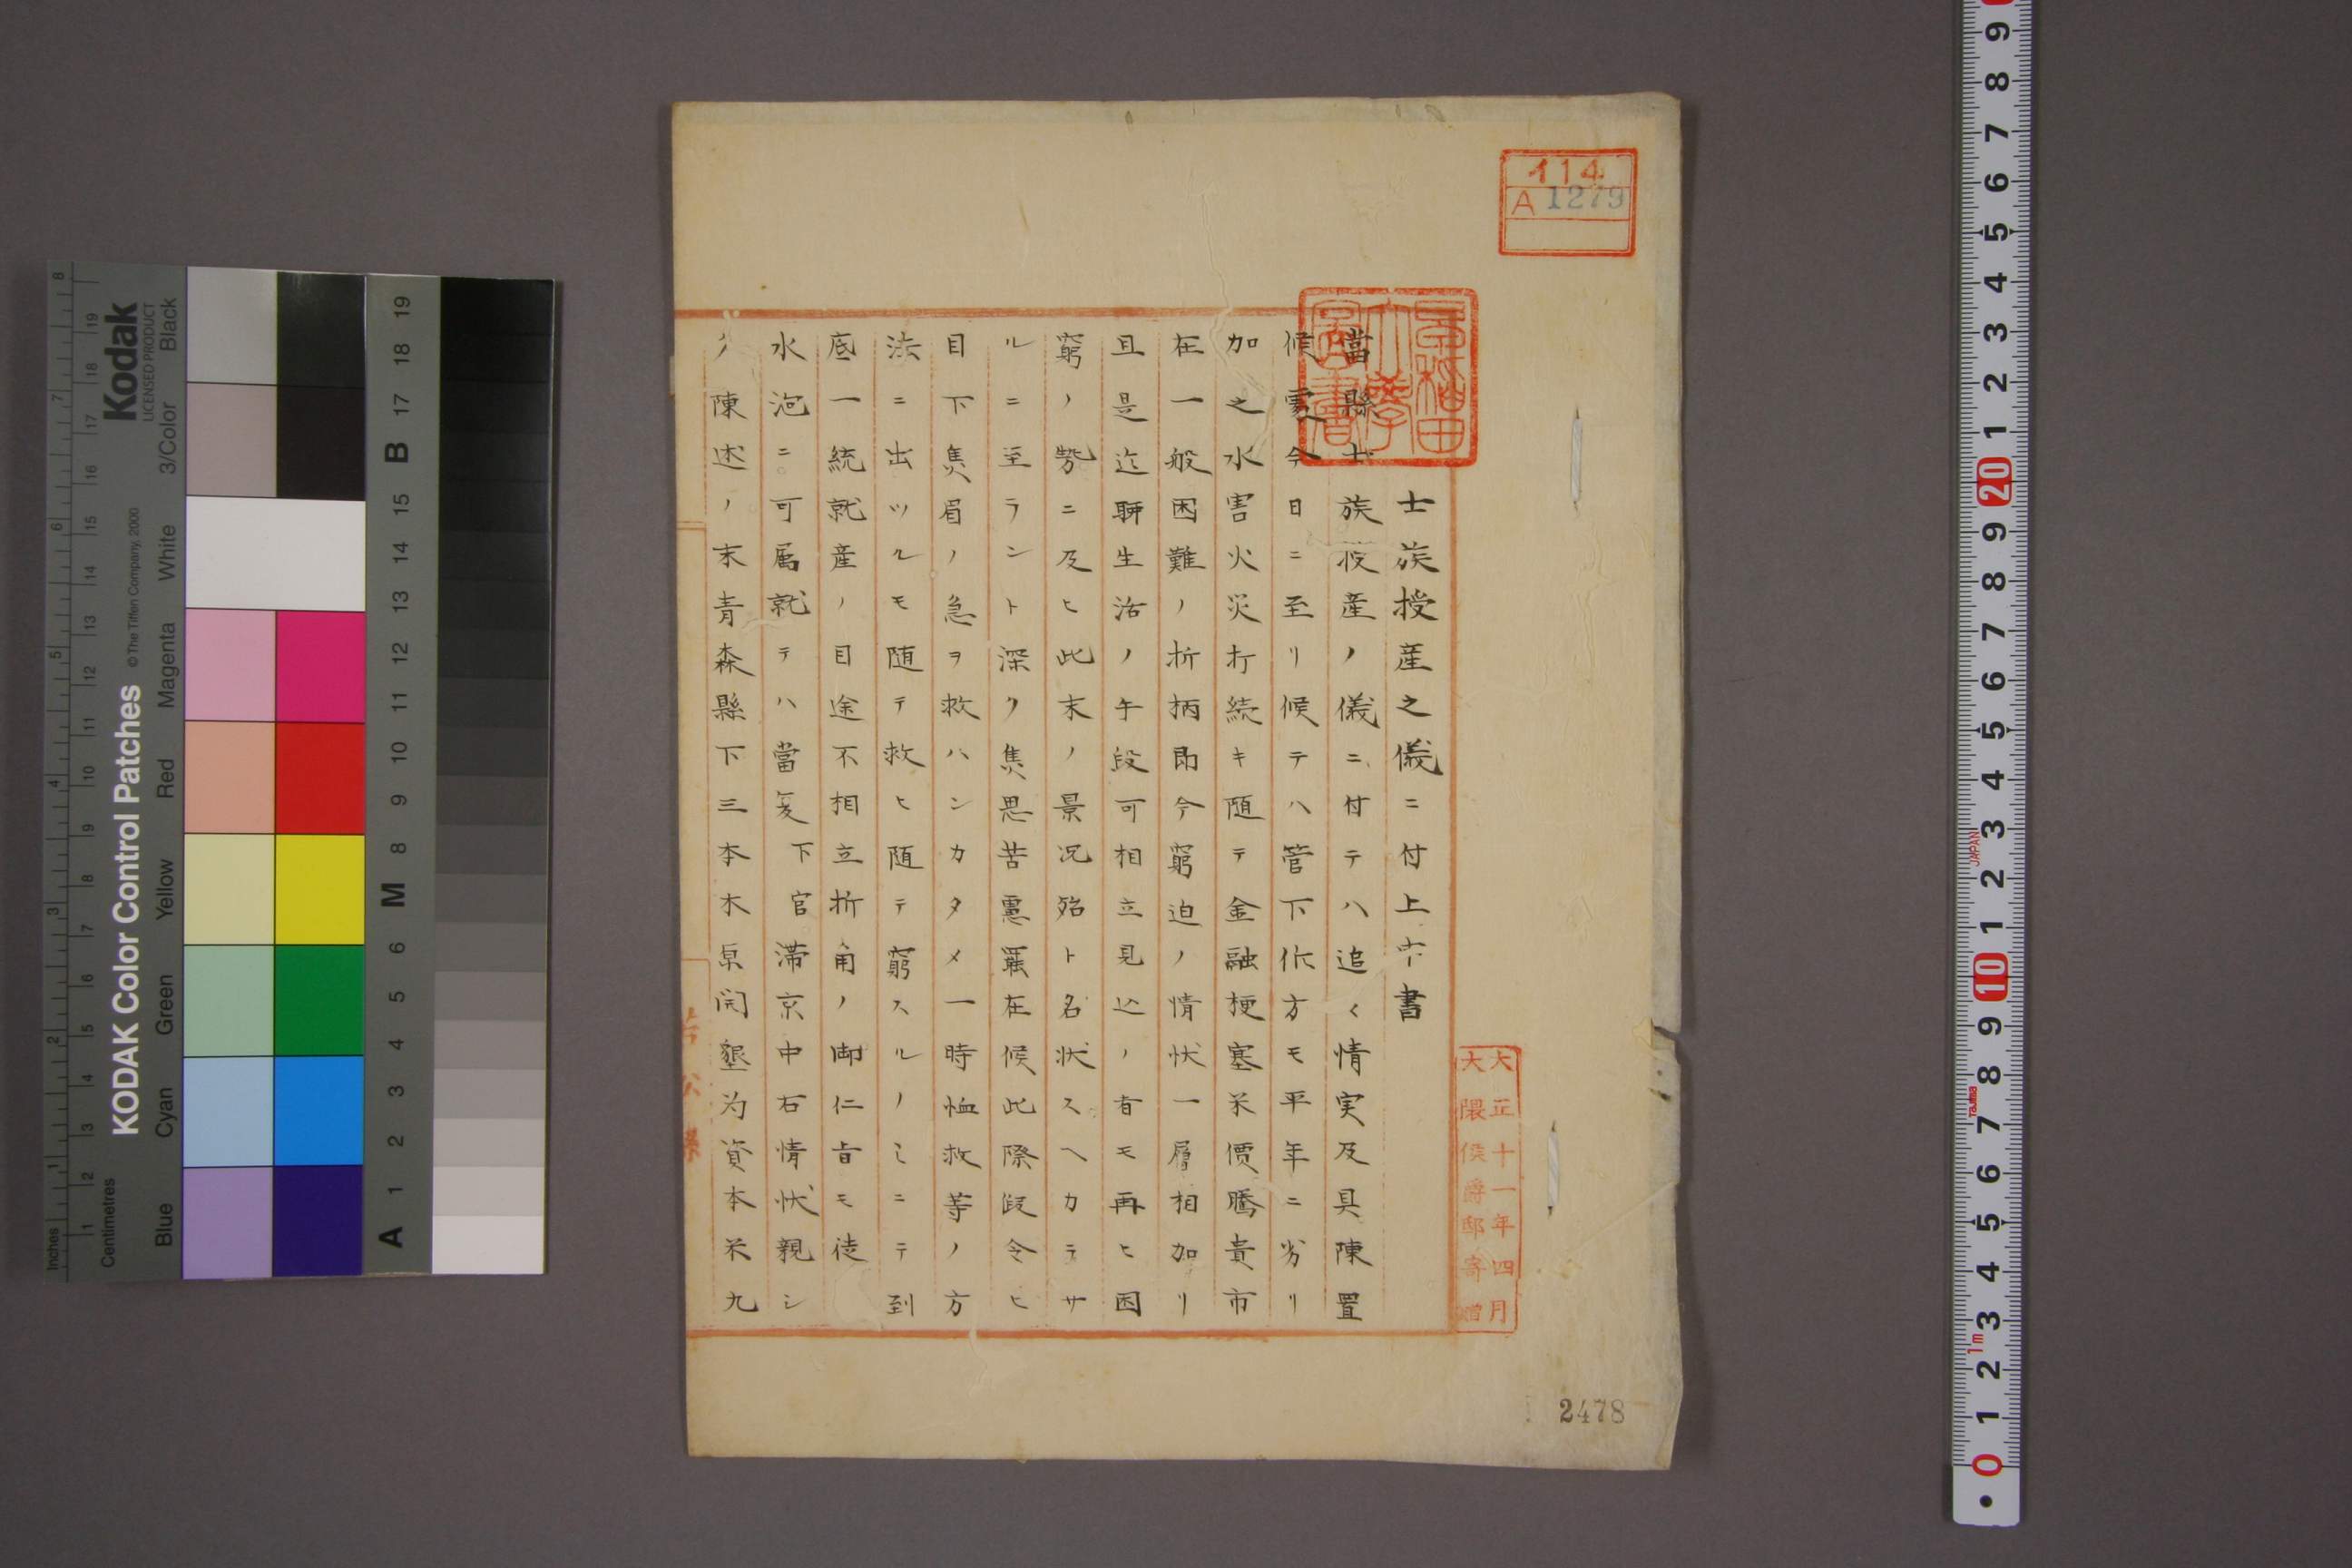 士族授産之儀ニ付上申書
當縣士族授産ノ儀ニ付テハ追々情実及具陳置
候處今日ニ至リ候テハ管下作方モ平年ニ劣リ
加之水害火災打続キ随テ金融梗塞米價騰貴市
在一般困難ノ折柄即今窮迫ノ情状一層相加リ
且是迄聊生活ノ手段可相立見込ノ者モ再ヒ困
窮ノ勢ニ及ヒ此末ノ景况殆ト名状スヘカラサ
ルニ至ラント深ク焦思苦慮罷在候此際假令ヒ
目下焦眉ノ急ヲ救ハンカタメ一時恤救等ノ方
法ニ出ツルモ随テ救ヒ随テ窮スルノミニテ到
底一統就産ノ目途不相立折角ノ御仁旨モ徒
水泡ニ可属就テハ當夏下官滞京中右情状親シ
ク陳述ノ末青森縣下三本木原開墾為資本米九
早稲田大學圖書
イ14
A 1279
大正十一年四月
大隈侯爵邸寄贈
2478
KODAK Color Control Patches
© The Tiffen Company, 2000
Kodak
LICENSED PRODUCT
Inches
Centimetres
Blue
Cyan
Green
Yellow
Red
Magenta
White
3/Color
Black
A 1 2 3 4 5 6 M 8 9 10 11 12 13 14 15 B 17 18 19
JAPAN
Tajima
1m